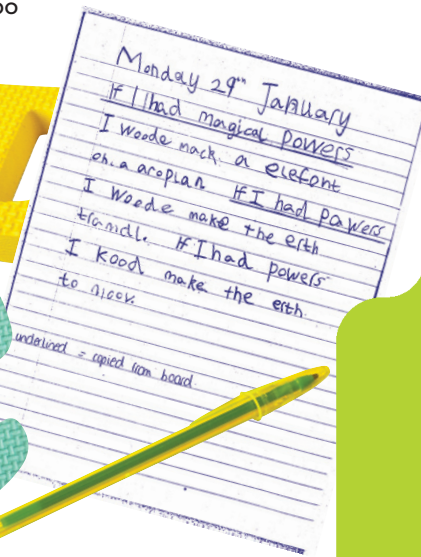 oo
Monday 29th January
If I had magical powers
I woode mack a elefont
on a aroplan If I had pawers
I woode make the erth
If I had powers
I kood make the erth
to
underlined = copied from board